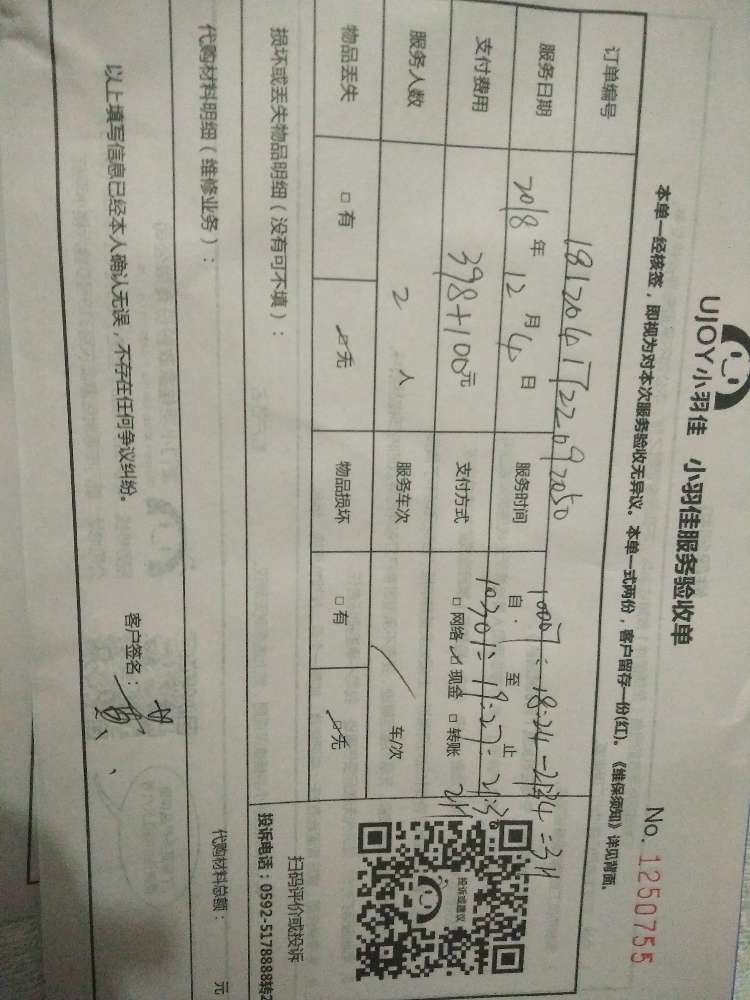 UJOY小羽佳 小羽佳服务验收单
No. 1250755
本单一经核签，即视为对本次服务验收无异议。本单一式两份，客户留存一份(红)。《维保须知》详见背面。
订单编号
服务日期 2018年 12月 4日 服务时间 自 至 止
支付费用 398+100元 支付方式 □网络 ☑现金 □转账
服务人数 2 人 服务车次 / 车/次
物品丢失 □有 ☑无 物品损坏 □有 ☑无
损坏或丢失物品明细（没有可不填）：
扫码评价或投诉
投诉电话：0592-5178888转2
投诉或建议
代购材料明细（维修业务）：
代购材料总额： 元
以上填写信息已经本人确认无误，不存在任何争议纠纷。
客户签名：